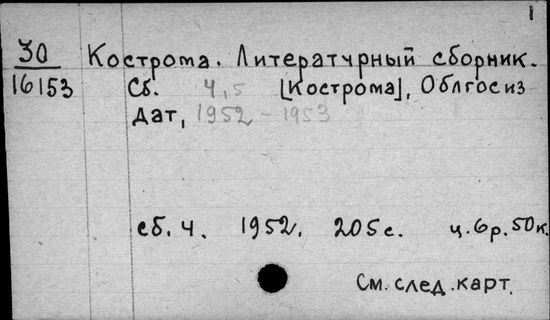 1
30 Кострома. Литературный сборник.
16153 Сб. 4,5 [Кострома], Облгосиз
дат, 1952-1953
сб. 4. 1952. 205с. ц. 6р. 50к.
См. след. карт.